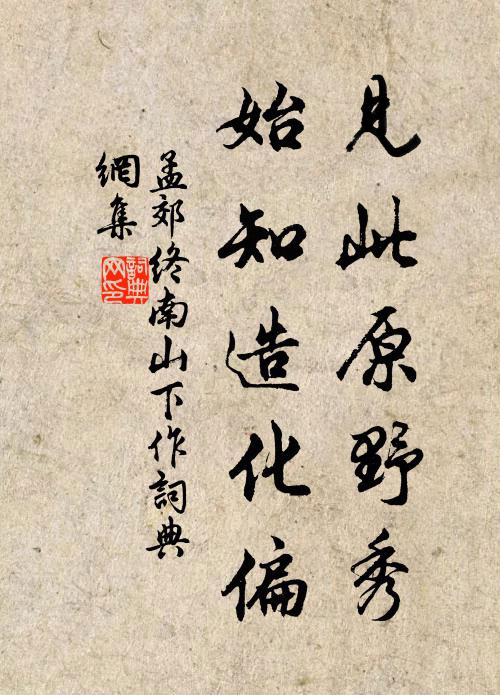 見此原野秀
始知造化偏
孟郊終南山下作詞典
網集
詞典
网印